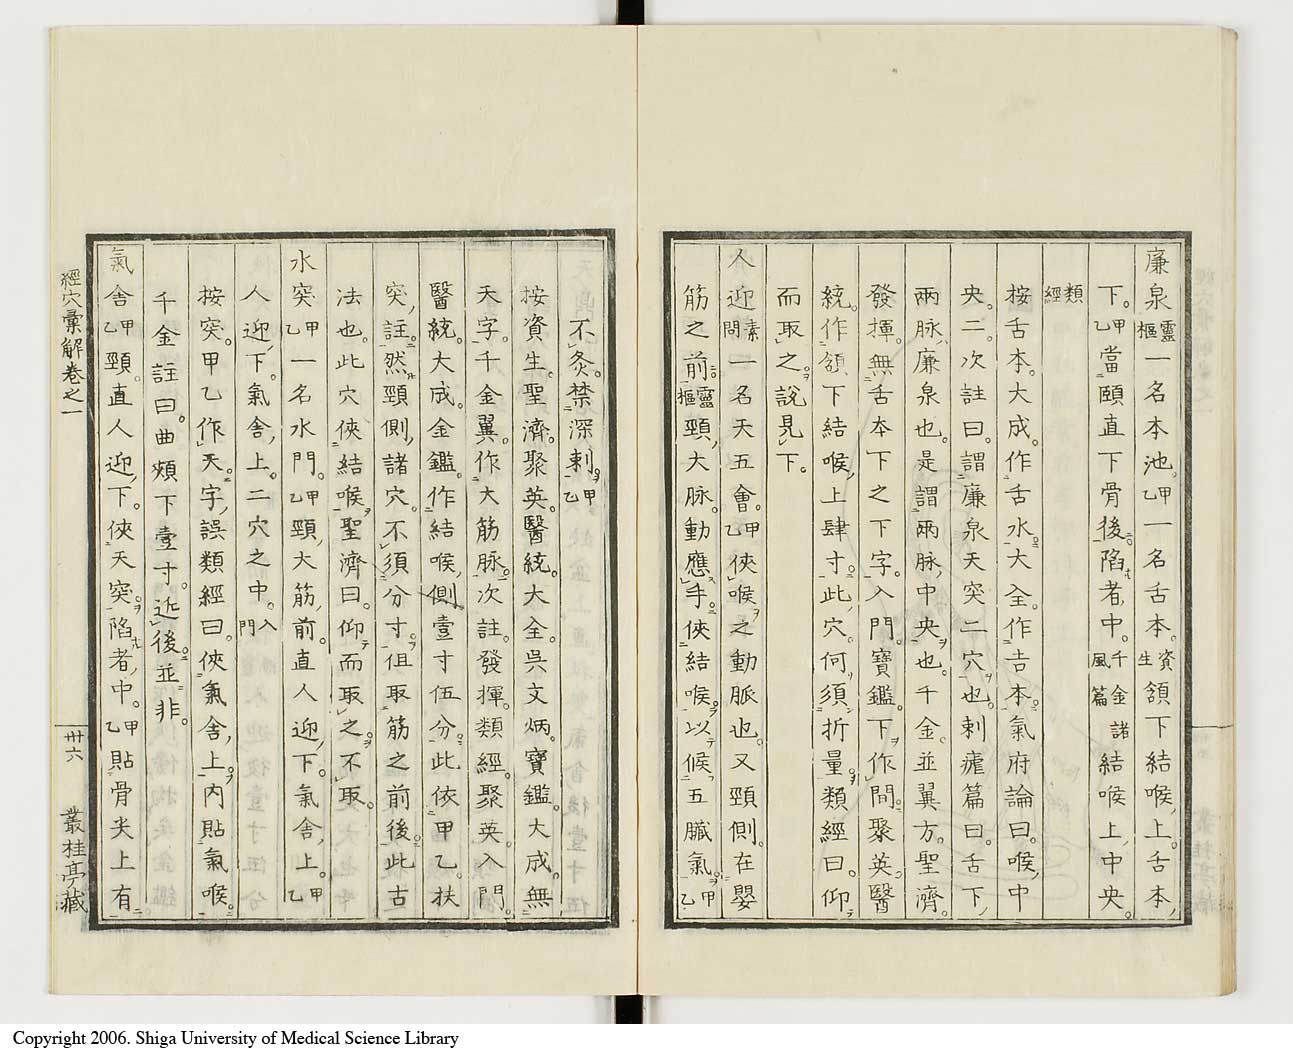 廉泉靈樞一名本池。甲乙一名舌本。資生頷下結喉上。舌本
下。甲乙當頤直下骨後。陷者中。千金風諸篇結喉上中央。
類經
按舌本。大成。作舌水。大全。作吉本。氣府論曰。喉中
央。二。次註曰。謂廉泉天突二穴也。刺瘧篇曰。舌下
兩脉廉泉也。是謂兩脉中央也。千金。並翼方。聖濟。
發揮。無舌本下之下字。入門。寶鑑。下作間。聚英。醫
統。作頷下結喉上肆寸。此穴何須折量。類經曰。仰
而取之說見下。
人迎素問一名天五會。甲乙俠喉之動脈也。又頸側。在嬰
筋之前。靈樞頸大脉。動應手。俠結喉。以候五臟氣。甲乙
不灸。禁深刺。甲乙
按資生。聖濟。聚英。醫統。大全。吳文炳。寶鑑。大成。無
天字。千金翼。作大筋脉。次註。發揮。類經。聚英。入門。
醫統。大成。金鑑。作結喉側壹寸伍分。此依甲乙。扶
突註。然頸側諸穴。不須分寸。但取筋之前後。此古
法也。此穴俠結喉。聖濟曰。仰而取之。不取。
水突甲乙一名水門。甲乙頸大筋前。直人迎下。氣舍上。甲乙
人迎下。氣舍上。二穴之中。入門
按突。甲乙作天字。誤類經曰。俠氣舍上。內貼氣喉。
千金註曰。曲頰下壹寸。近後。並非。
氣舍甲乙頸直人迎下。俠天突。陷者中。甲乙貼骨尖上有
經穴彙解卷之一
卅六
叢桂亭藏
Copyright 2006. Shiga University of Medical Science Library